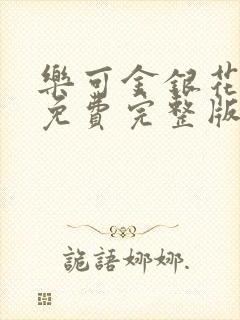 樂可金銀花
免費完整版
詭語娜娜.